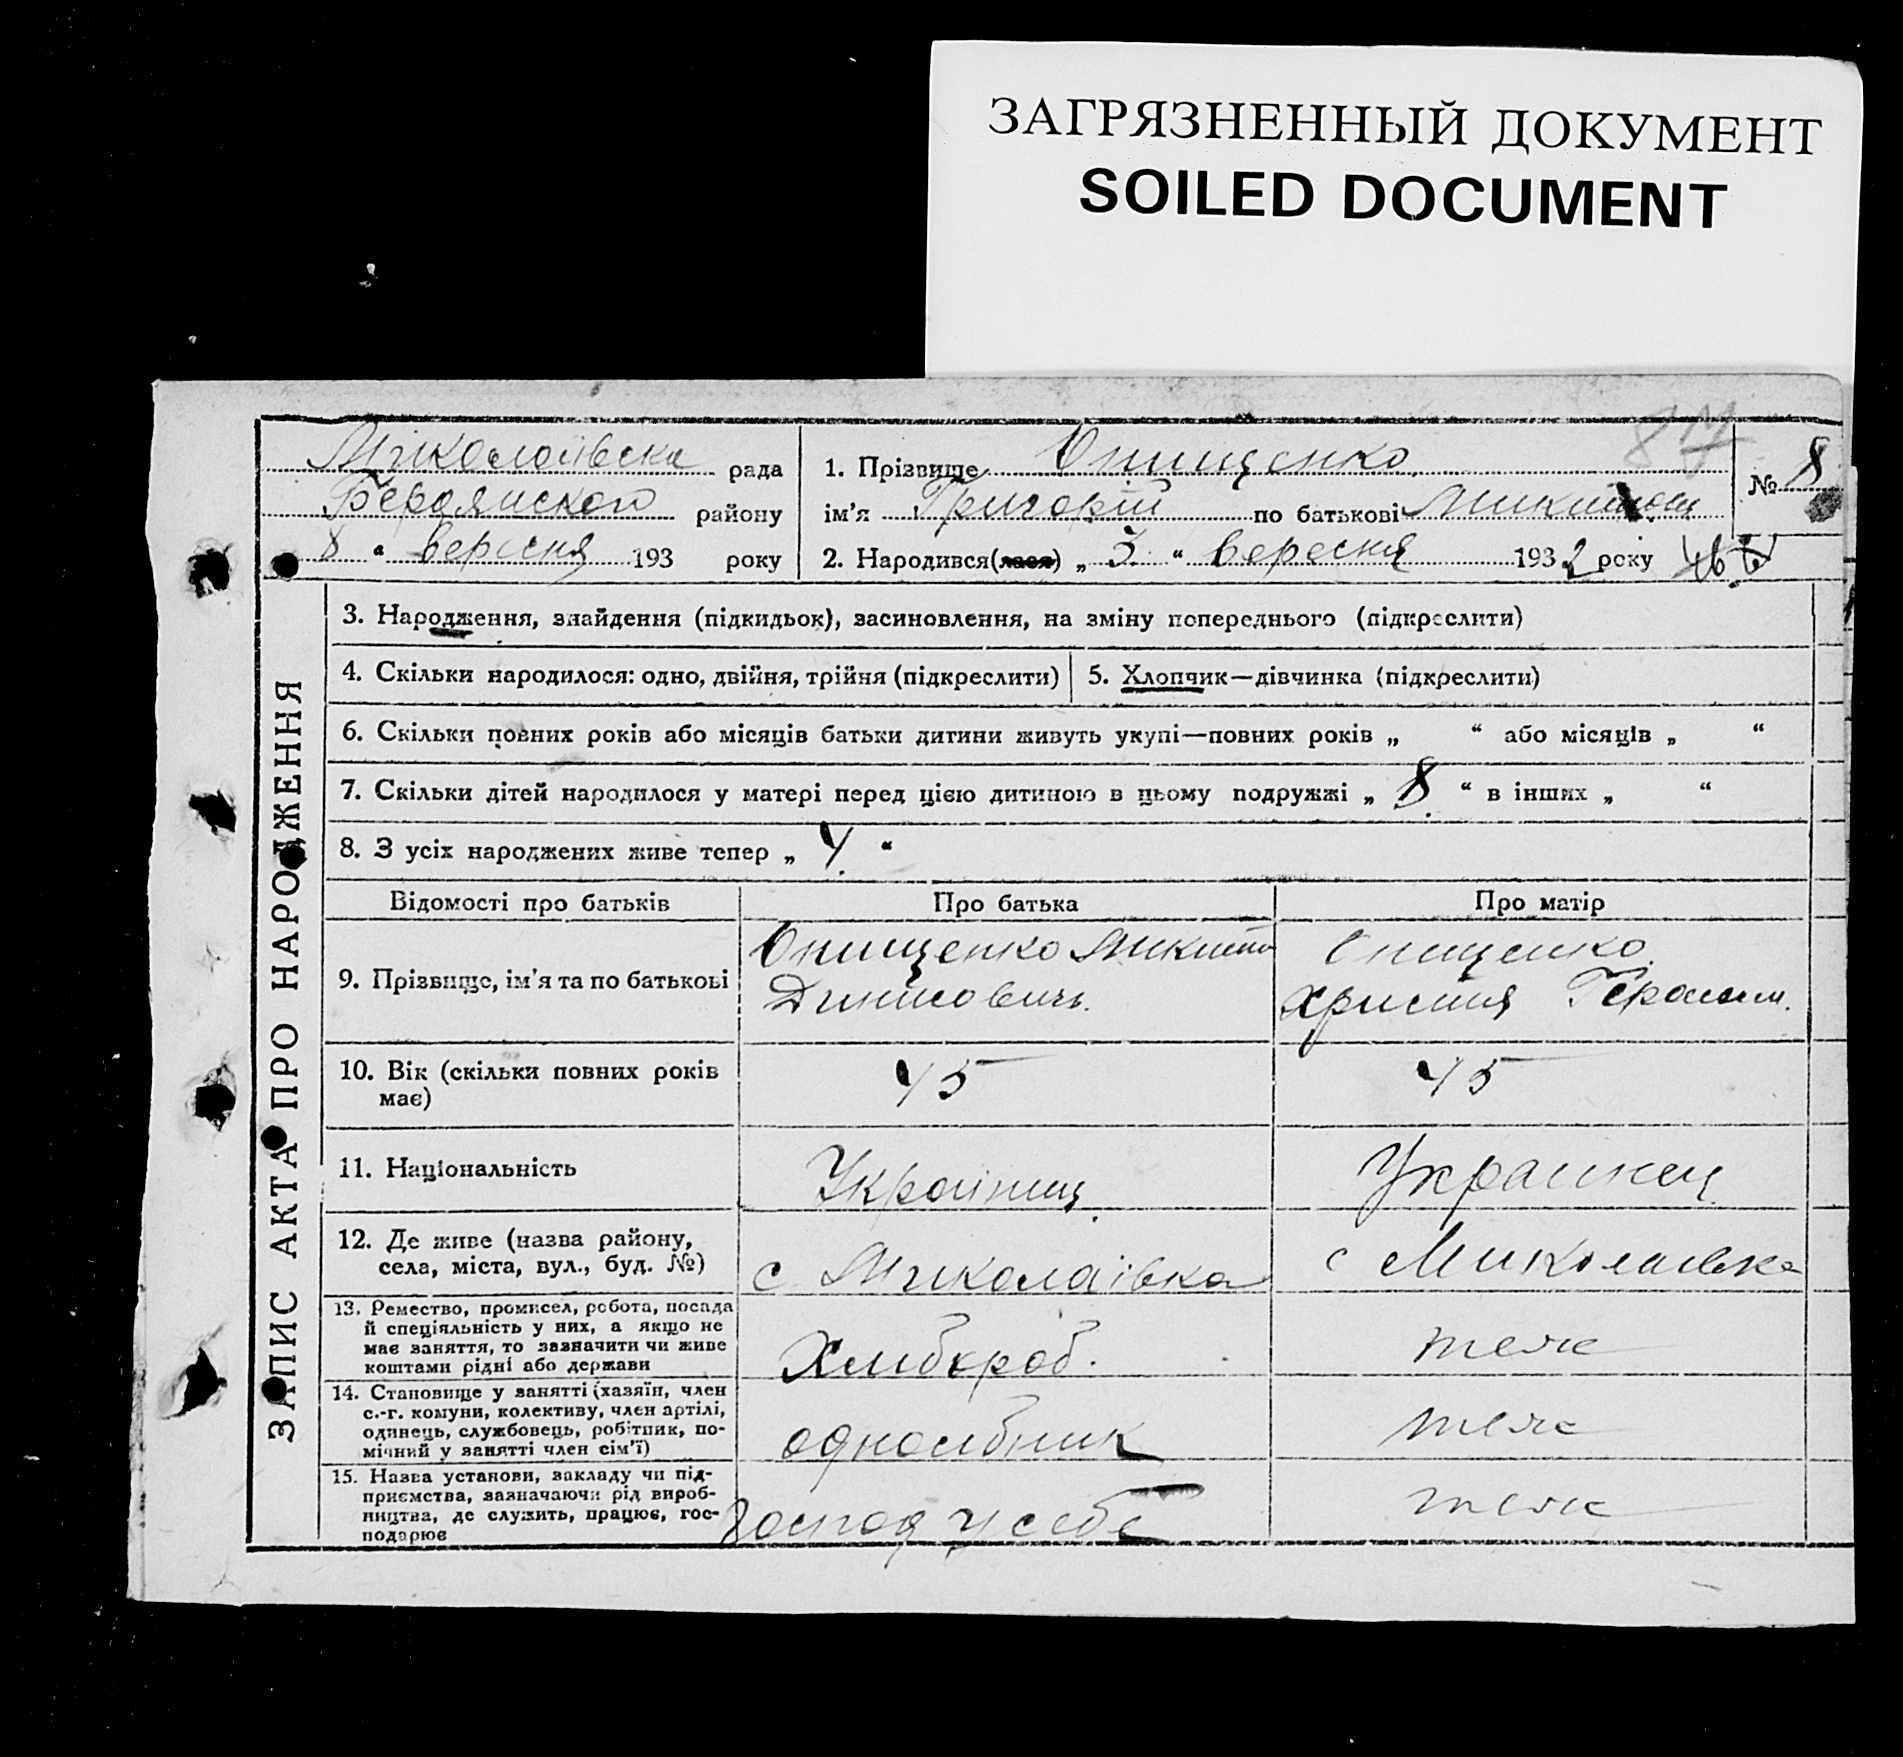 ЗАГРЯЗНЕННЫЙ ДОКУМЕНТ
SOILED DOCUMENT
87
Миколаївська рада
Бердянського району
8 " вересня 193 року
1. Прізвище Онищенко
ім'я Григорій по батькові
2. Народився(лася) „ 3 " вересня 1932 року
№ 8
ЗАПИС АКТА ПРО НАРОДЖЕННЯ
3. Народження, знайдення (підкидьок), засиновлення, на зміну попереднього (підкреслити)
4. Скільки народилося: одно, двійня, трійня (підкреслити)
5. Хлопчик—дівчинка (підкреслити)
6. Скільки повних років або місяців батьки дитини живуть укупі—повних років „ " або місяців „ "
7. Скільки дітей народилося у матері перед цією дитиною в цьому подружжі „ 8 " в інших „ "
8. З усіх народжених живе тепер „ 4 "
Відомості про батьків
Про батька
Про матір
9. Прізвище, ім'я та по батькові
Онищенко Микита
Динисович
Онищенко
Христия Герасим.
10. Вік (скільки повних років
має)
45
45
11. Національність
Українец
Украинец
12. Де живе (назва району,
села, міста, вул., буд. №)
с Миколаївка
с Миколаивка
13. Ремество, промисел, робота, посада
й спеціяльність у них, а якщо не
має заняття, то зазначити чи живе
коштами рідні або держави
Хлибороб.
теж
14. Становище у занятті (хазяїн, член
с.-г. комуни, колективу, член артілі,
одинець, службовець, робітник, по-
мічний у занятті член сім'ї)
одноосібник
теж
15. Назва установи, закладу чи під-
приємства, зазначаючи рід вироб-
ництва, де служить, працює, гос-
подарює
Господ у себе
теж